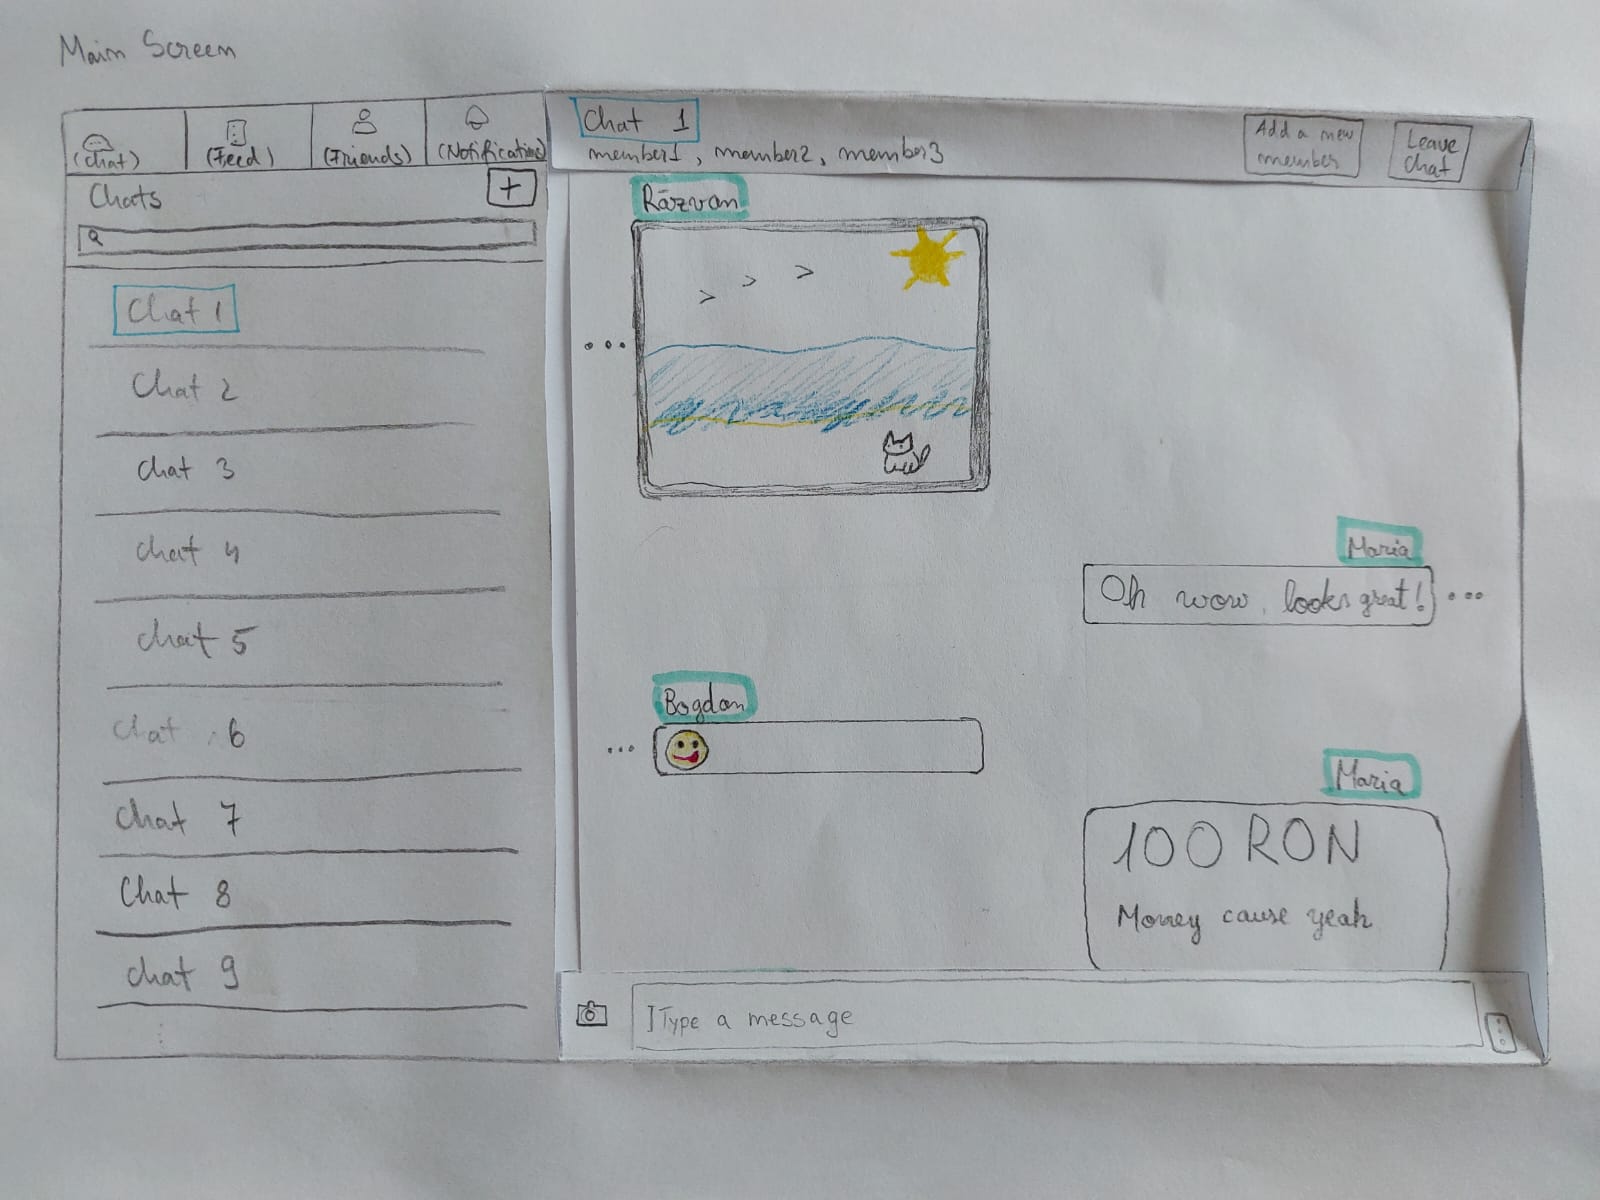 Main Screen
(chat)
(Feed)
(Friends)
(Notifications)
Chats
+
Chat 1
Chat 2
Chat 3
Chat 4
Chat 5
Chat 6
Chat 7
Chat 8
Chat 9
Chat 1
member1, member2, member3
Add a new
member
Leave
Chat
Răzvan
Maria
Oh wow, looks great!
Bogdan
Maria
100 RON
Money cause yeah
Type a message